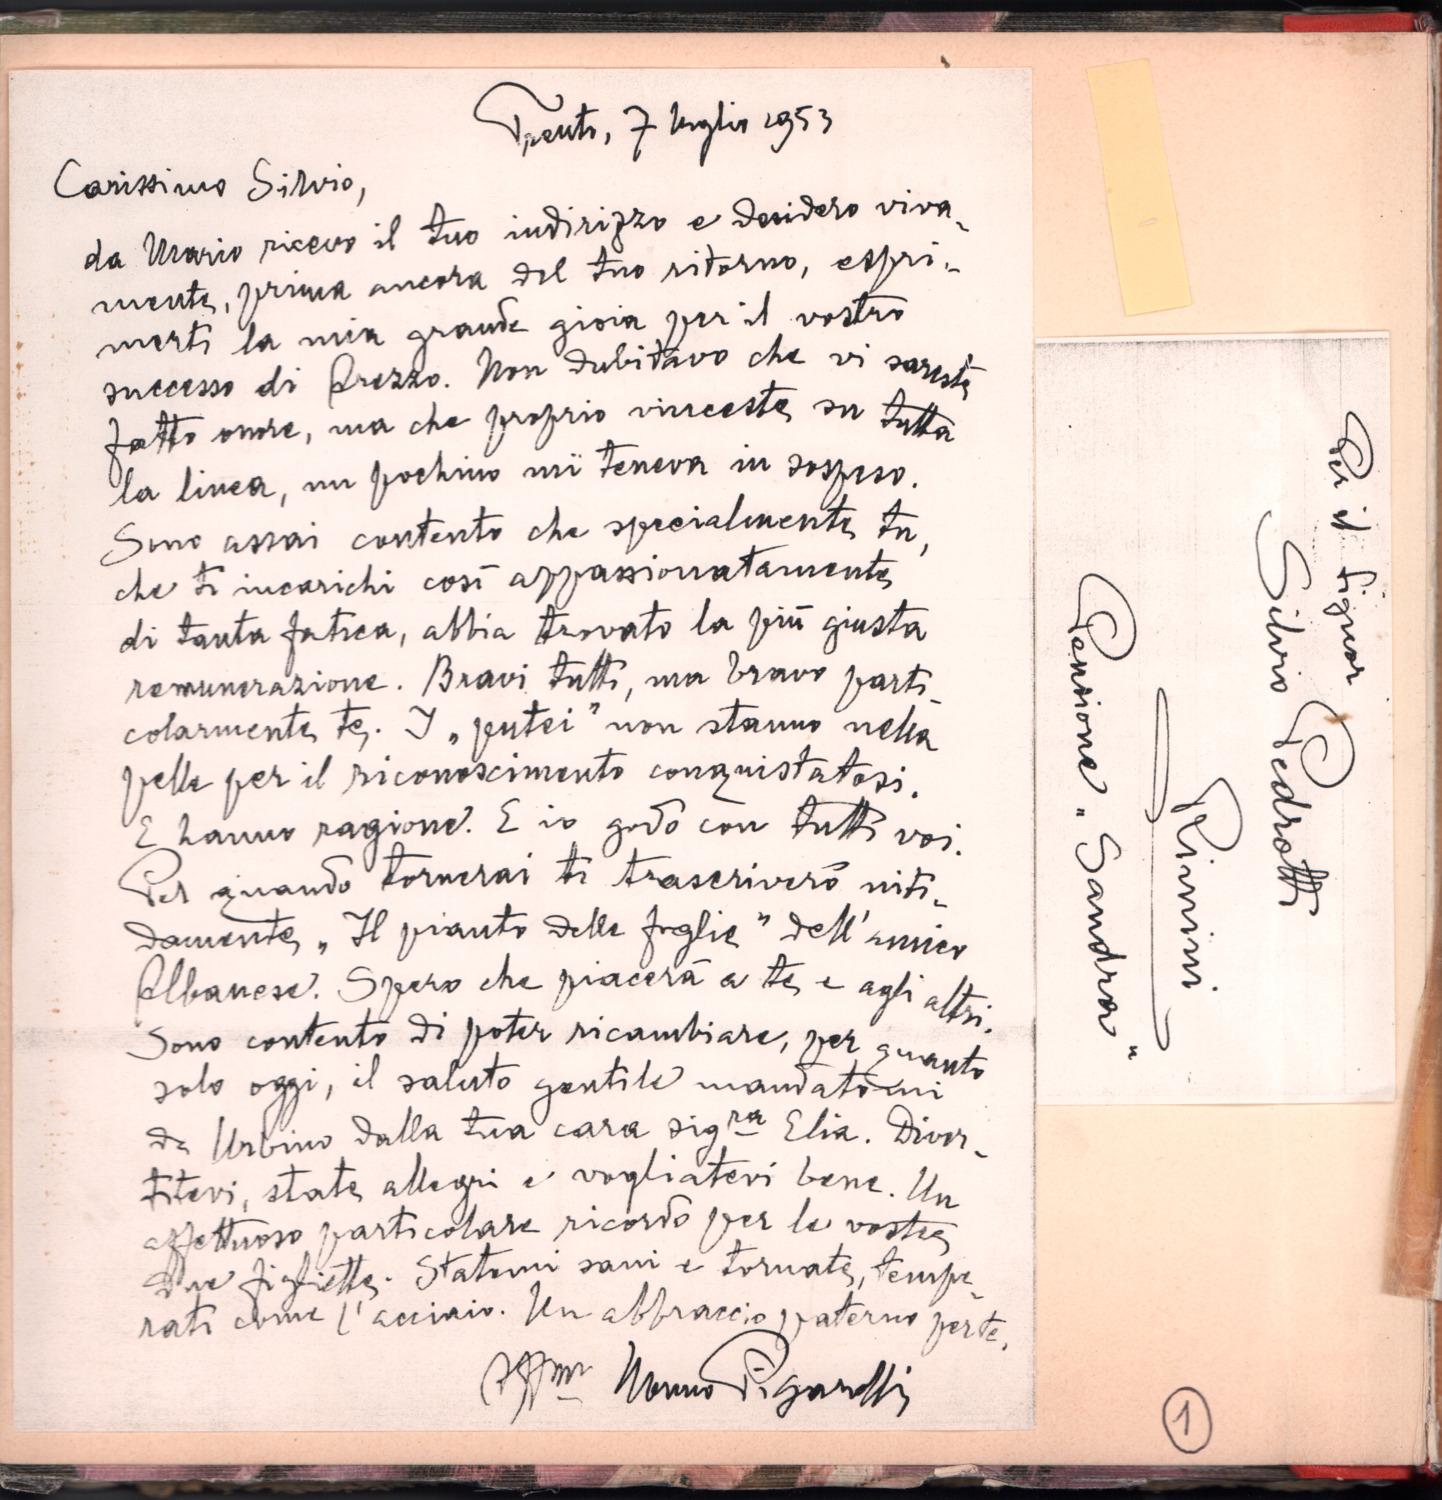 Trento, 7 luglio 1953
Carissimo Silvio,
da Mario ricevo il tuo indirizzo e desidero viva-
mente, prima ancora del tuo ritorno, espri-
merti la mia grande gioia per il vostro
successo di Arezzo. Non dubitavo che vi sareste
fatto onore, ma che proprio vinceste su tutta
la linea, un pochino mi teneva in sospeso.
Sono assai contento che specialmente tu,
che ti incarichi così appassionatamente
di tanta fatica, abbia trovato la più giusta
remunerazione. Bravi tutti, ma bravo parti-
colarmente te. I „putei" non stanno nella
pelle per il riconoscimento conquistatosi.
E hanno ragione. E io godo con tutti voi.
Per quando tornerai ti trascriverò niti-
damente „Il pianto delle foglie" dell'amico
Albanese. Spero che piacerà a te e agli altri.
Sono contento di poter ricambiare, per quanto
solo oggi, il saluto gentile mandatomi
da Urbino dalla tua cara sig.ra Elia. Diver-
titevi, state allegri e vogliatevi bene. Un
affettuoso particolare ricordo per le vostre
due figliette. Statemi sani e tornate, tempe-
rati come l'acciaio. Un abbraccio paterno per te.
Aff.mo Nonno Pigarelli
Per il Signor
Silvio Pedrotti
Rimini
Pensione „Sandra"
1